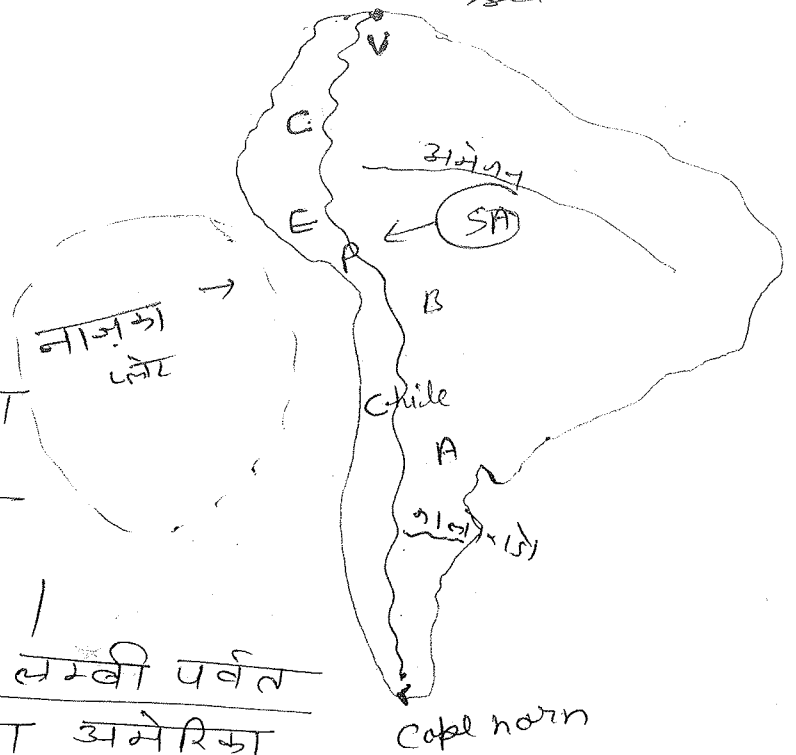 V
C
अमेजन
SA
E
P
B
नाज़का
प्लेट
Chile
A
लम्बी पर्वत
अमेरिका
Cape horn